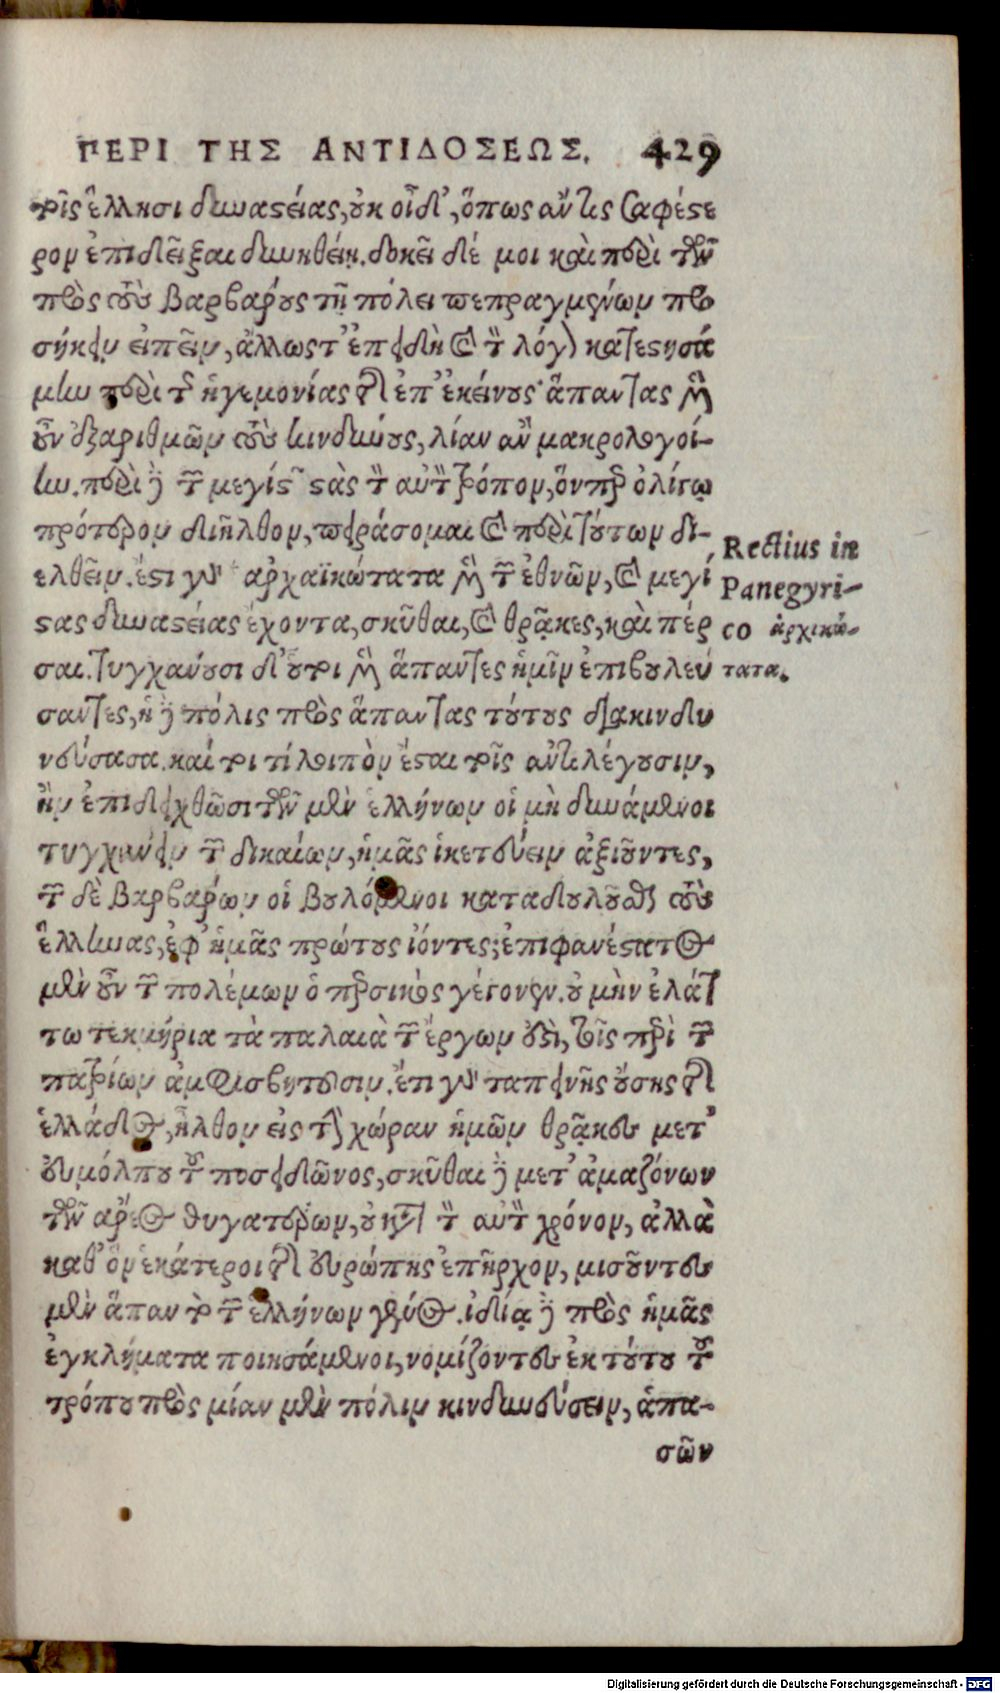 ΠΕΡΙ ΤΗΣ ΑΝΤΙΔΟΣΕΩΣ. 429
τοῖς ἕλλησι δυναστείας, οὐκ οἶδ', ὅπως ἄν τις σαφέστε
ρον ἐπιδεῖξαι δυνηθείη. δοκεῖ δέ μοι καὶ περὶ τῶν
πρὸς τοὺς βαρβάρους τῇ πόλει πεπραγμένων προ
σήκειν εἰπεῖν, ἄλλως τ' ἐπειδὴ καὶ τὸν λόγον κατεστησά
μην περὶ τῆς ἡγεμονίας τῆς ἐπ' ἐκείνους· ἅπαντας μὲν
οὖν ἐξαριθμῶν τοὺς κινδύνους, λίαν ἂν μακρολογοί-
ην. περὶ δὲ τῶν μεγίστων στὰς τὸν αὐτὸν τρόπον, ὅνπερ ὀλίγῳ
πρότερον διῆλθον, πειράσομαι καὶ περὶ τούτων δι-
ελθεῖν. ἔστι γὰρ ἀρχαϊκώτατα μὲν τῶν ἐθνῶν, καὶ μεγί
στας δυναστείας ἔχοντα, σκῦθαι, καὶ θρᾷκες, καὶ πέρ
σαι. τυγχάνουσι δ' οὗτοι μὲν ἅπαντες ἡμῖν ἐπιβουλεύ
σαντες, ἡ δὲ πόλις πρὸς ἅπαντας τούτους διακινδυ
νεύσασα. καί τοι τί λοιπὸν ἔσται τοῖς ἀντιλέγουσιν,
ἢν ἐπιδειχθῶσι τῶν μὲν ἑλλήνων οἱ μὴ δυνάμενοι
τυγχάνειν τῶν δικαίων, ἡμᾶς ἱκετεύειν ἀξιοῦντες,
τῶν δὲ βαρβάρων οἱ βουλόμενοι καταδουλοῦσθαι τοὺς
ἕλληνας, ἐφ' ἡμᾶς πρώτους ἰόντες; ἐπιφανέστατος
μὲν οὖν τῶν πολέμων ὁ περσικὸς γέγονεν. οὐ μὴν ἐλάτ
τω τεκμήρια τὰ παλαιὰ τῶν ἔργων ἐστὶ, τοῖς περὶ τῶν
πατρίων ἀμφισβητοῦσιν. ἔτι γὰρ ταπεινῆς οὔσης τῆς
ἑλλάδος, ἦλθον εἰς τὴν χώραν ἡμῶν θρᾷκες μετ'
εὐμόλπου τοῦ ποσειδῶνος, σκῦθαι δὲ μετ' ἀμαζόνων
τῶν ἄρεος θυγατέρων, οὐ κατὰ τὸν αὐτὸν χρόνον, ἀλλὰ
καθ' ὃν ἑκάτεροι τῆς εὐρώπης ἐπῆρχον, μισοῦντες
μὲν ἅπαν τὸ τῶν ἑλλήνων γένος. ἰδίᾳ δὲ πρὸς ἡμᾶς
ἐγκλήματα ποιησάμενοι, νομίζοντες ἐκ τούτου τοῦ
τρόπου πρὸς μίαν μὲν πόλιν κινδυνεύσειν, ἁπα-
σῶν
Rectius in
Panegyri-
co ἀρχικώ-
τατα.
Digitalisierung gefördert durch die Deutsche Forschungsgemeinschaft - DFG